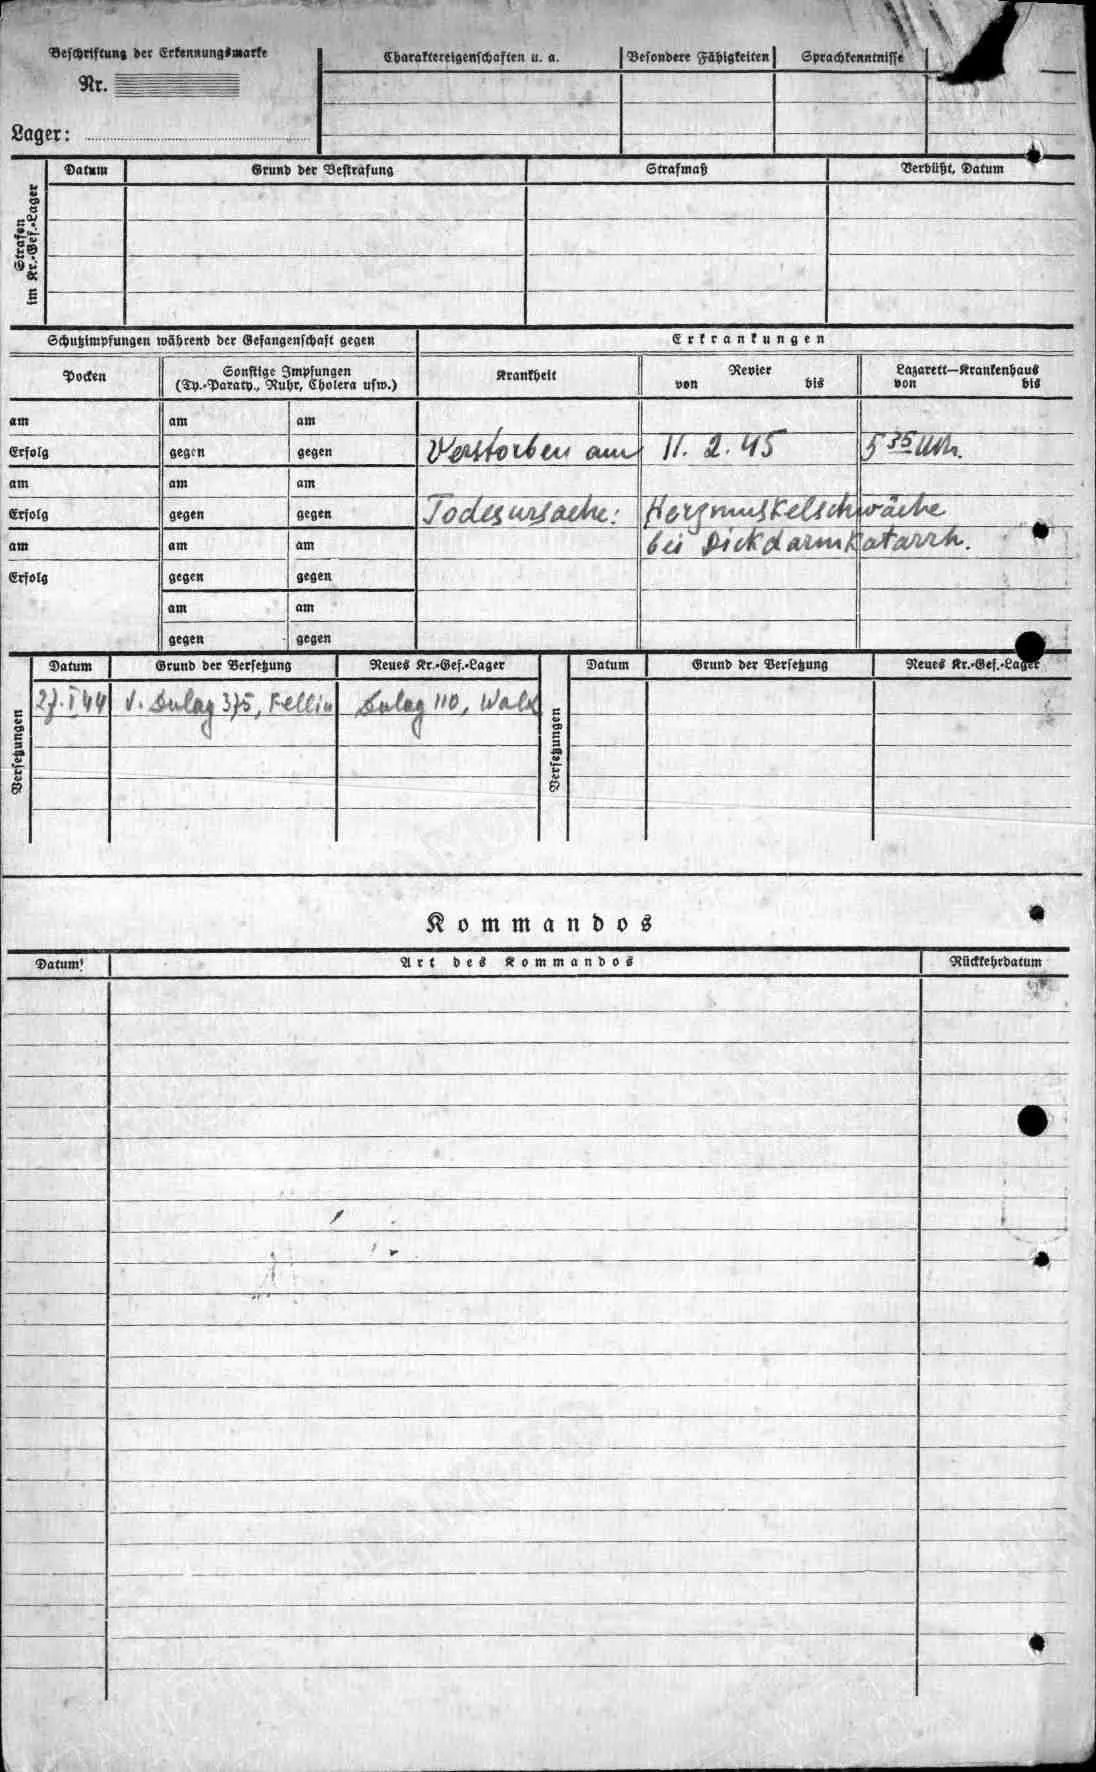 Beschriftung der Erkennungsmarke
Nr.
Lager:
Charaktereigenschaften u. a.
Besondere Fähigkeiten
Sprachkenntnisse
Strafen
im Kr.-Gef.-Lager
Datum
Grund der Bestrafung
Strafmaß
Verbüßt, Datum
Schutzimpfungen während der Gefangenschaft gegen
Erkrankungen
Pocken
Sonstige Impfungen
(Ty.-Paraty., Ruhr, Cholera usw.)
Krankheit
Revier
von bis
Lazarett—Krankenhaus
von bis
am am am
Erfolg gegen gegen Verstorben am 11. 2. 45 5 35 Uhr.
am am am
Erfolg gegen gegen Todesursache: Herzmuskelschwäche
am am am bei Dickdarmkatarrh.
Erfolg gegen gegen
am am
gegen gegen
Versetzungen
Datum Grund der Versetzung Neues Kr.-Gef.-Lager
27. I 44 v. Dulag 375, Fellin Dulag 110, Walk
Versetzungen
Datum Grund der Versetzung Neues Kr.-Gef.-Lager
Kommandos
Datum Art des Kommandos Rückkehrdatum